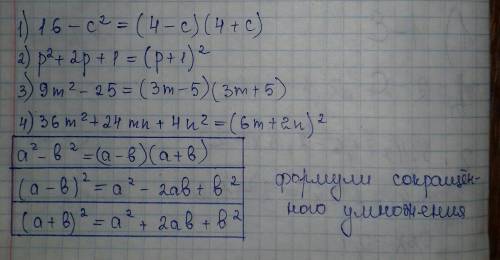 1) 16 - c² = (4-c)(4+c)
2) p²+2p+1=(p+1)²
3) 9m²-25=(3m-5)(3m+5)
4) 36m²+24mn+4n²=(6m+2n)²
a²-в²=(a-в)(a+в)
(a-в)²=a²-2aв+в²
(a+в)²=a²+2aв+в²
формули сокращён-
ного умножения